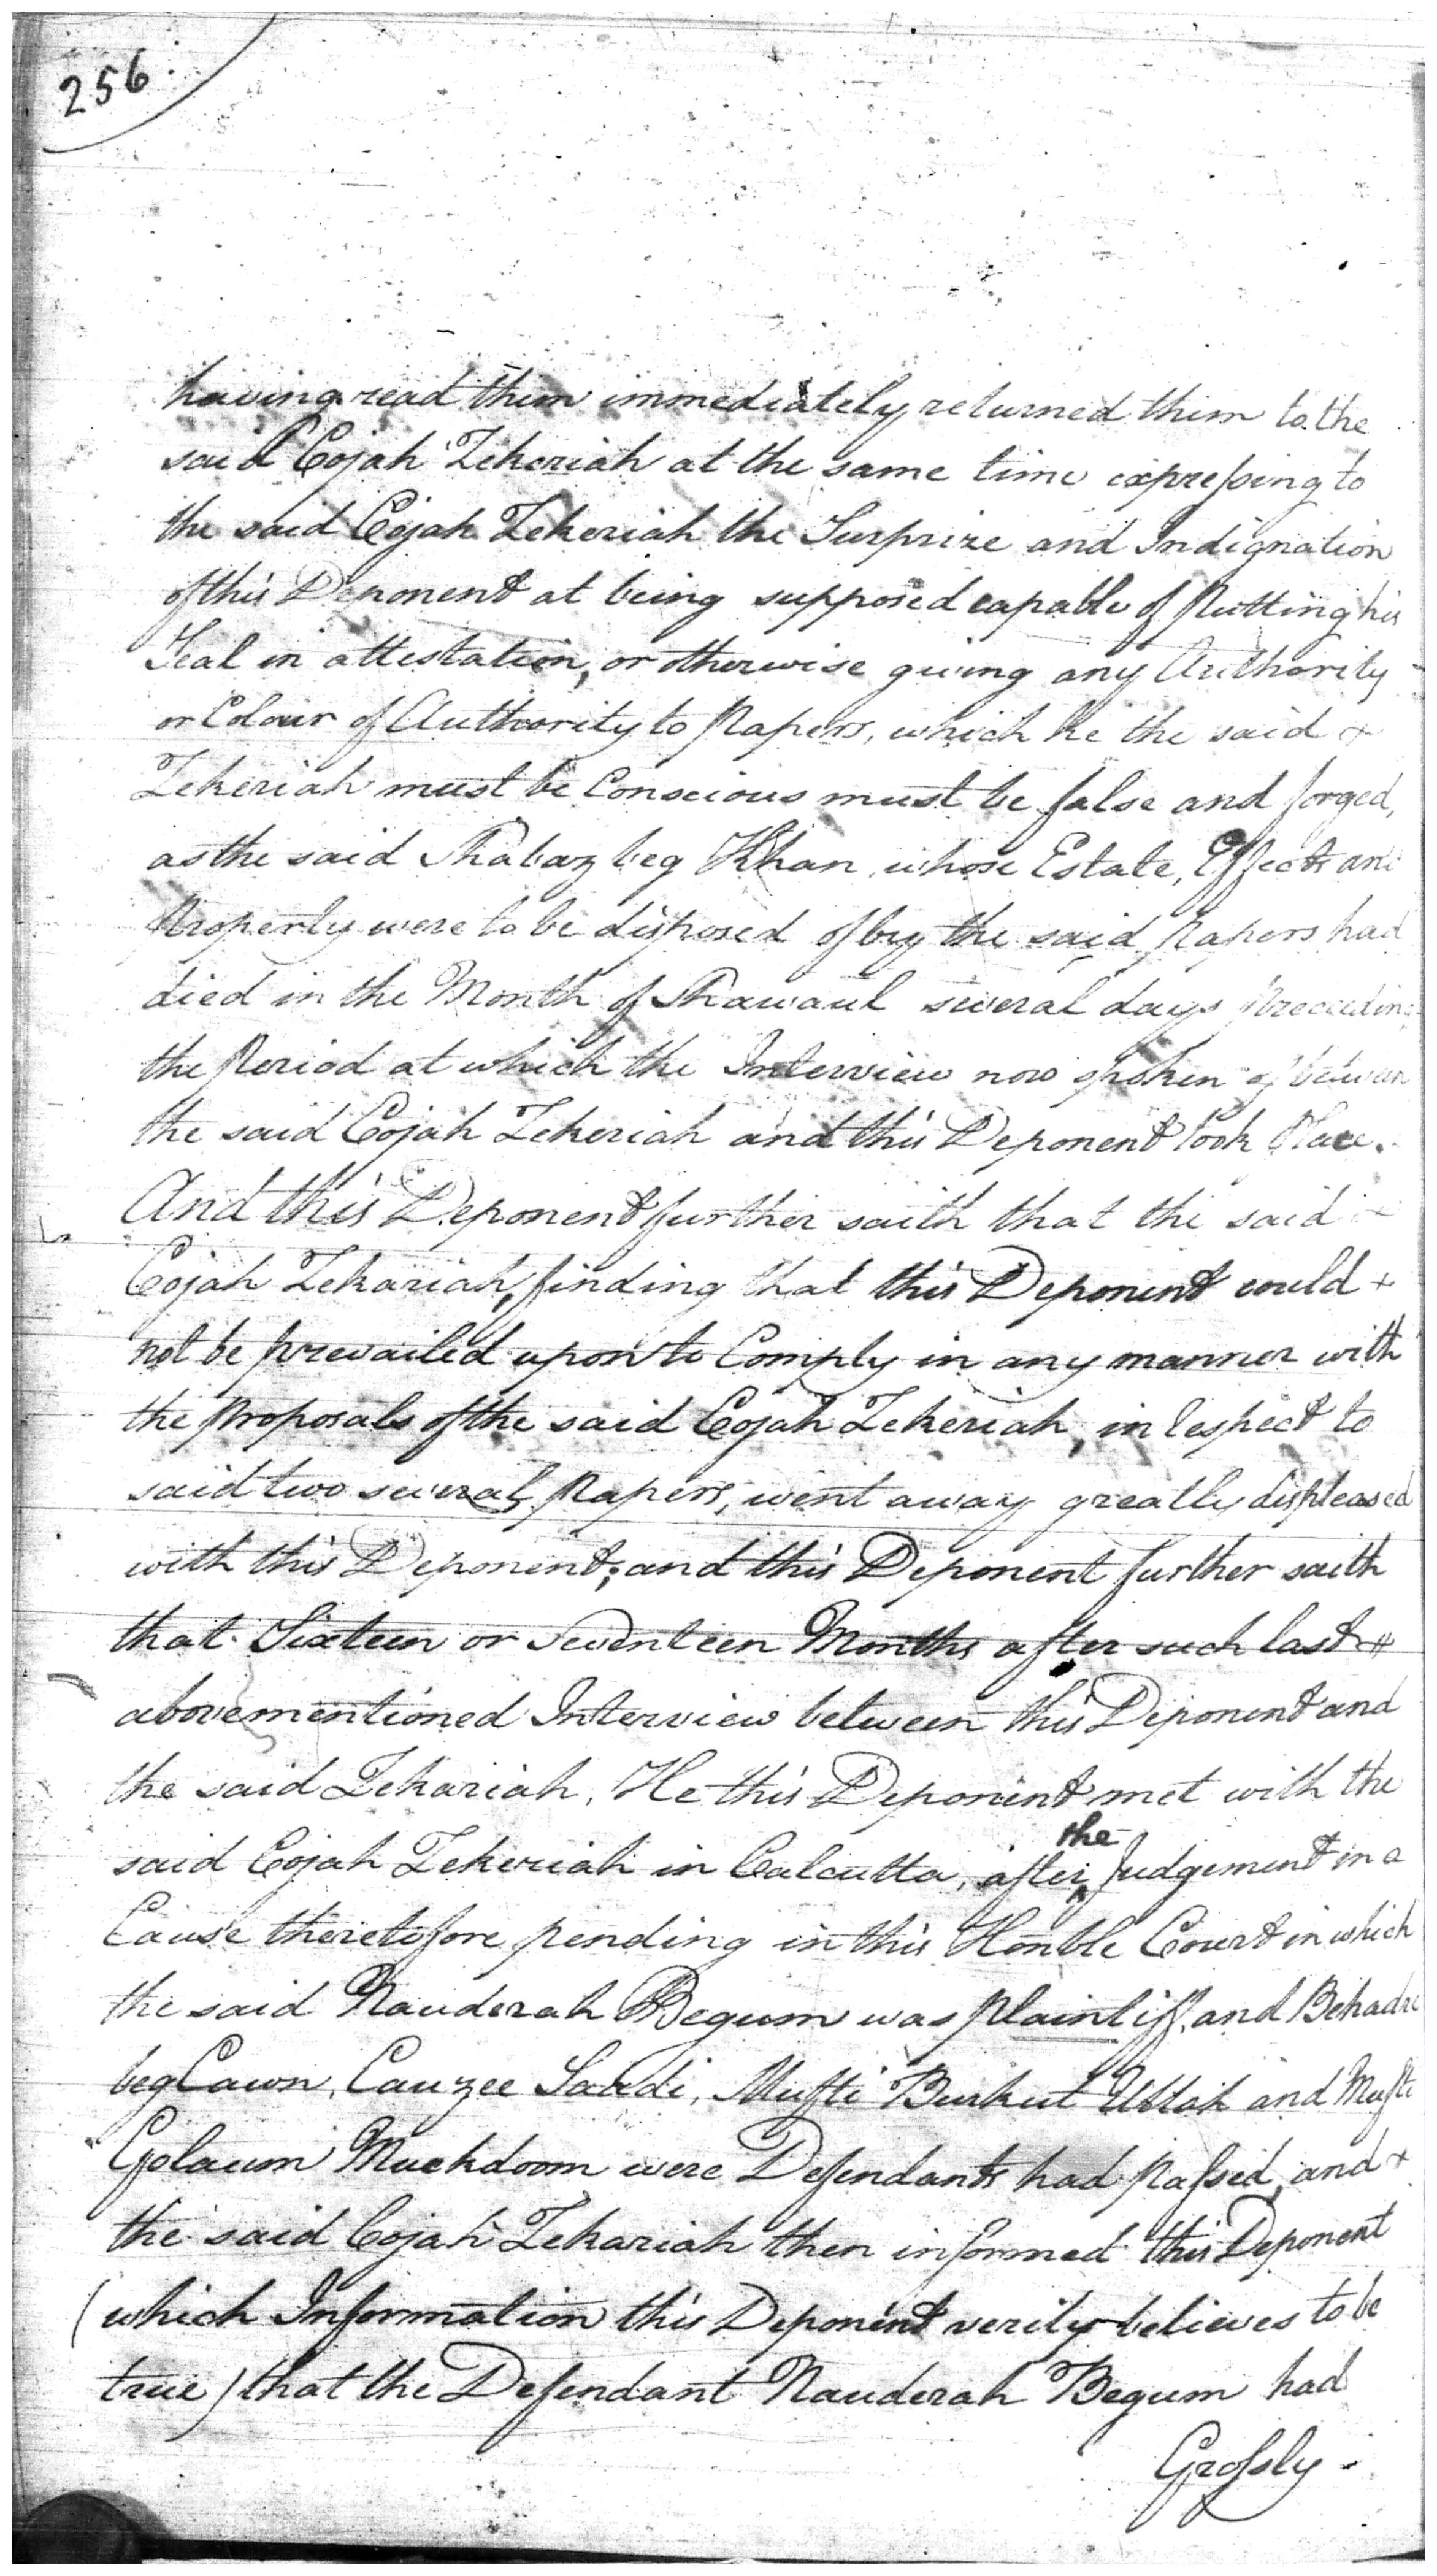 256
having read them immediately returned them to the
said Cojah Zekeriah at the same time expressing to
the said Cojah Zekeriah the Surprize and Indignation
of this Deponent at being supposed capable of Putting his
Seal in attestation, or otherwise giving any Authority
or Colour of Authority to Papers, which he the said +
Zekeriah must be Conscious must be false and forged,
as the said Shabaz beg Khan whose Estate, Effects and
Property were to be disposed of by the said Papers had
died in the Month of Shawaul several days preceeding
the Period at which the Interview now spoken of between
the said Cojah Zekeriah and this Deponent took Place.
And this Deponent further saith that the said +
Cojah Zekariah, finding that this Deponent could +
not be prevailed upon to Comply in any manner with
the Proposals of the said Cojah Zekeriah, in respect to
said two several Papers, went away greatly displeased
with this Deponent; and this Deponent further saith
that Sixteen or Seventeen Months after such last +
abovementioned Interview between this Deponent and
the said Zekariah, He this Deponent met with the
said Cojah Zekeriah in Calcutta, after the Judgement in a
Cause theretofore pending in this Honble Court in which
the said Nauderah Begum was Plaintiff, and Behadre
beg Cawn, Cauzee Saudi, Mufti Burkut Ullah and Mufti
Golaum Muckdoom were Defendants had passed, and +
the said Cojah Zekariah then informed this Deponent
(which Information this Deponent verily believes to be
true) that the Defendant Nauderah Begum had
Grossly